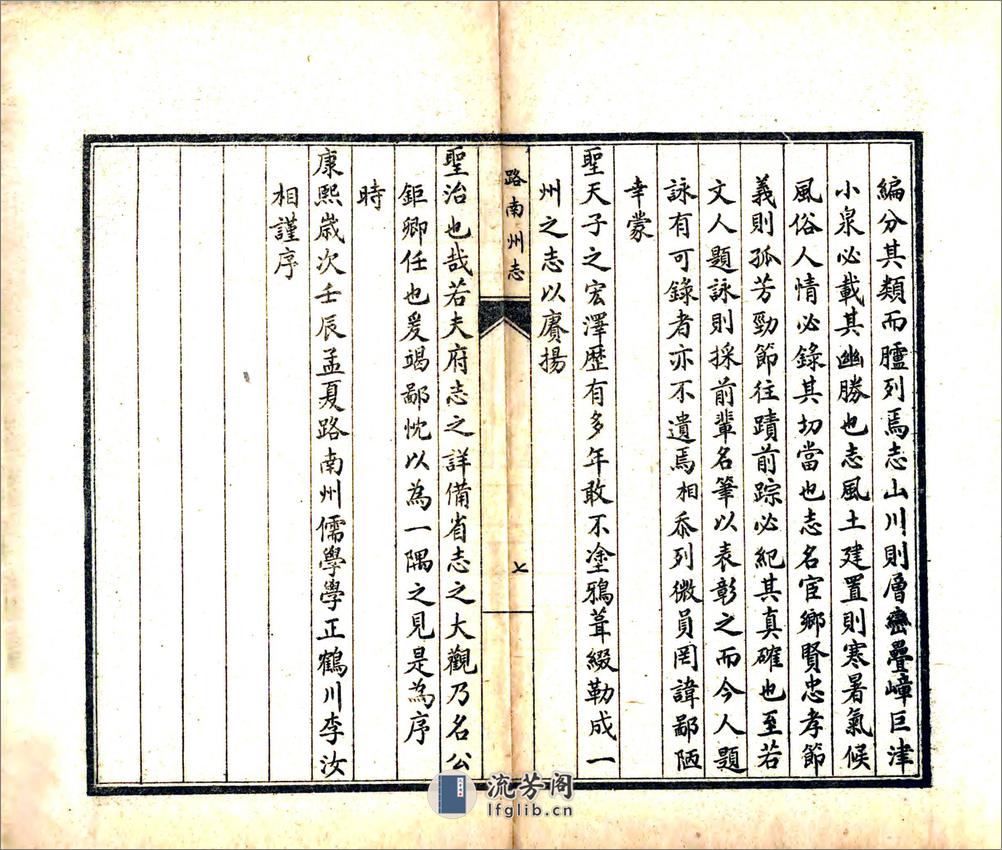 編分其類而臚列焉志山川則層巒疊嶂巨津
小泉必載其幽勝也志風土建置則寒暑氣候
風俗人情必錄其切當也志名宦鄉賢忠孝節
義則孤芳勁節往蹟前踪必紀其真確也至若
文人題詠則採前輩名筆以表彰之而今人題
詠有可錄者亦不遺焉相忝列微員罔諱鄙陋
幸蒙
聖天子之宏澤歷有多年敢不塗鴉葺綴勒成一
州之志以賡揚
路南州志
七
聖治也哉若夫府志之詳備省志之大觀乃名公
鉅卿任也爰竭鄙忱以為一隅之見是為序
時
康熙歲次壬辰孟夏路南州儒學學正鶴川李汝
相謹序
流芳阁
lfglib.cn